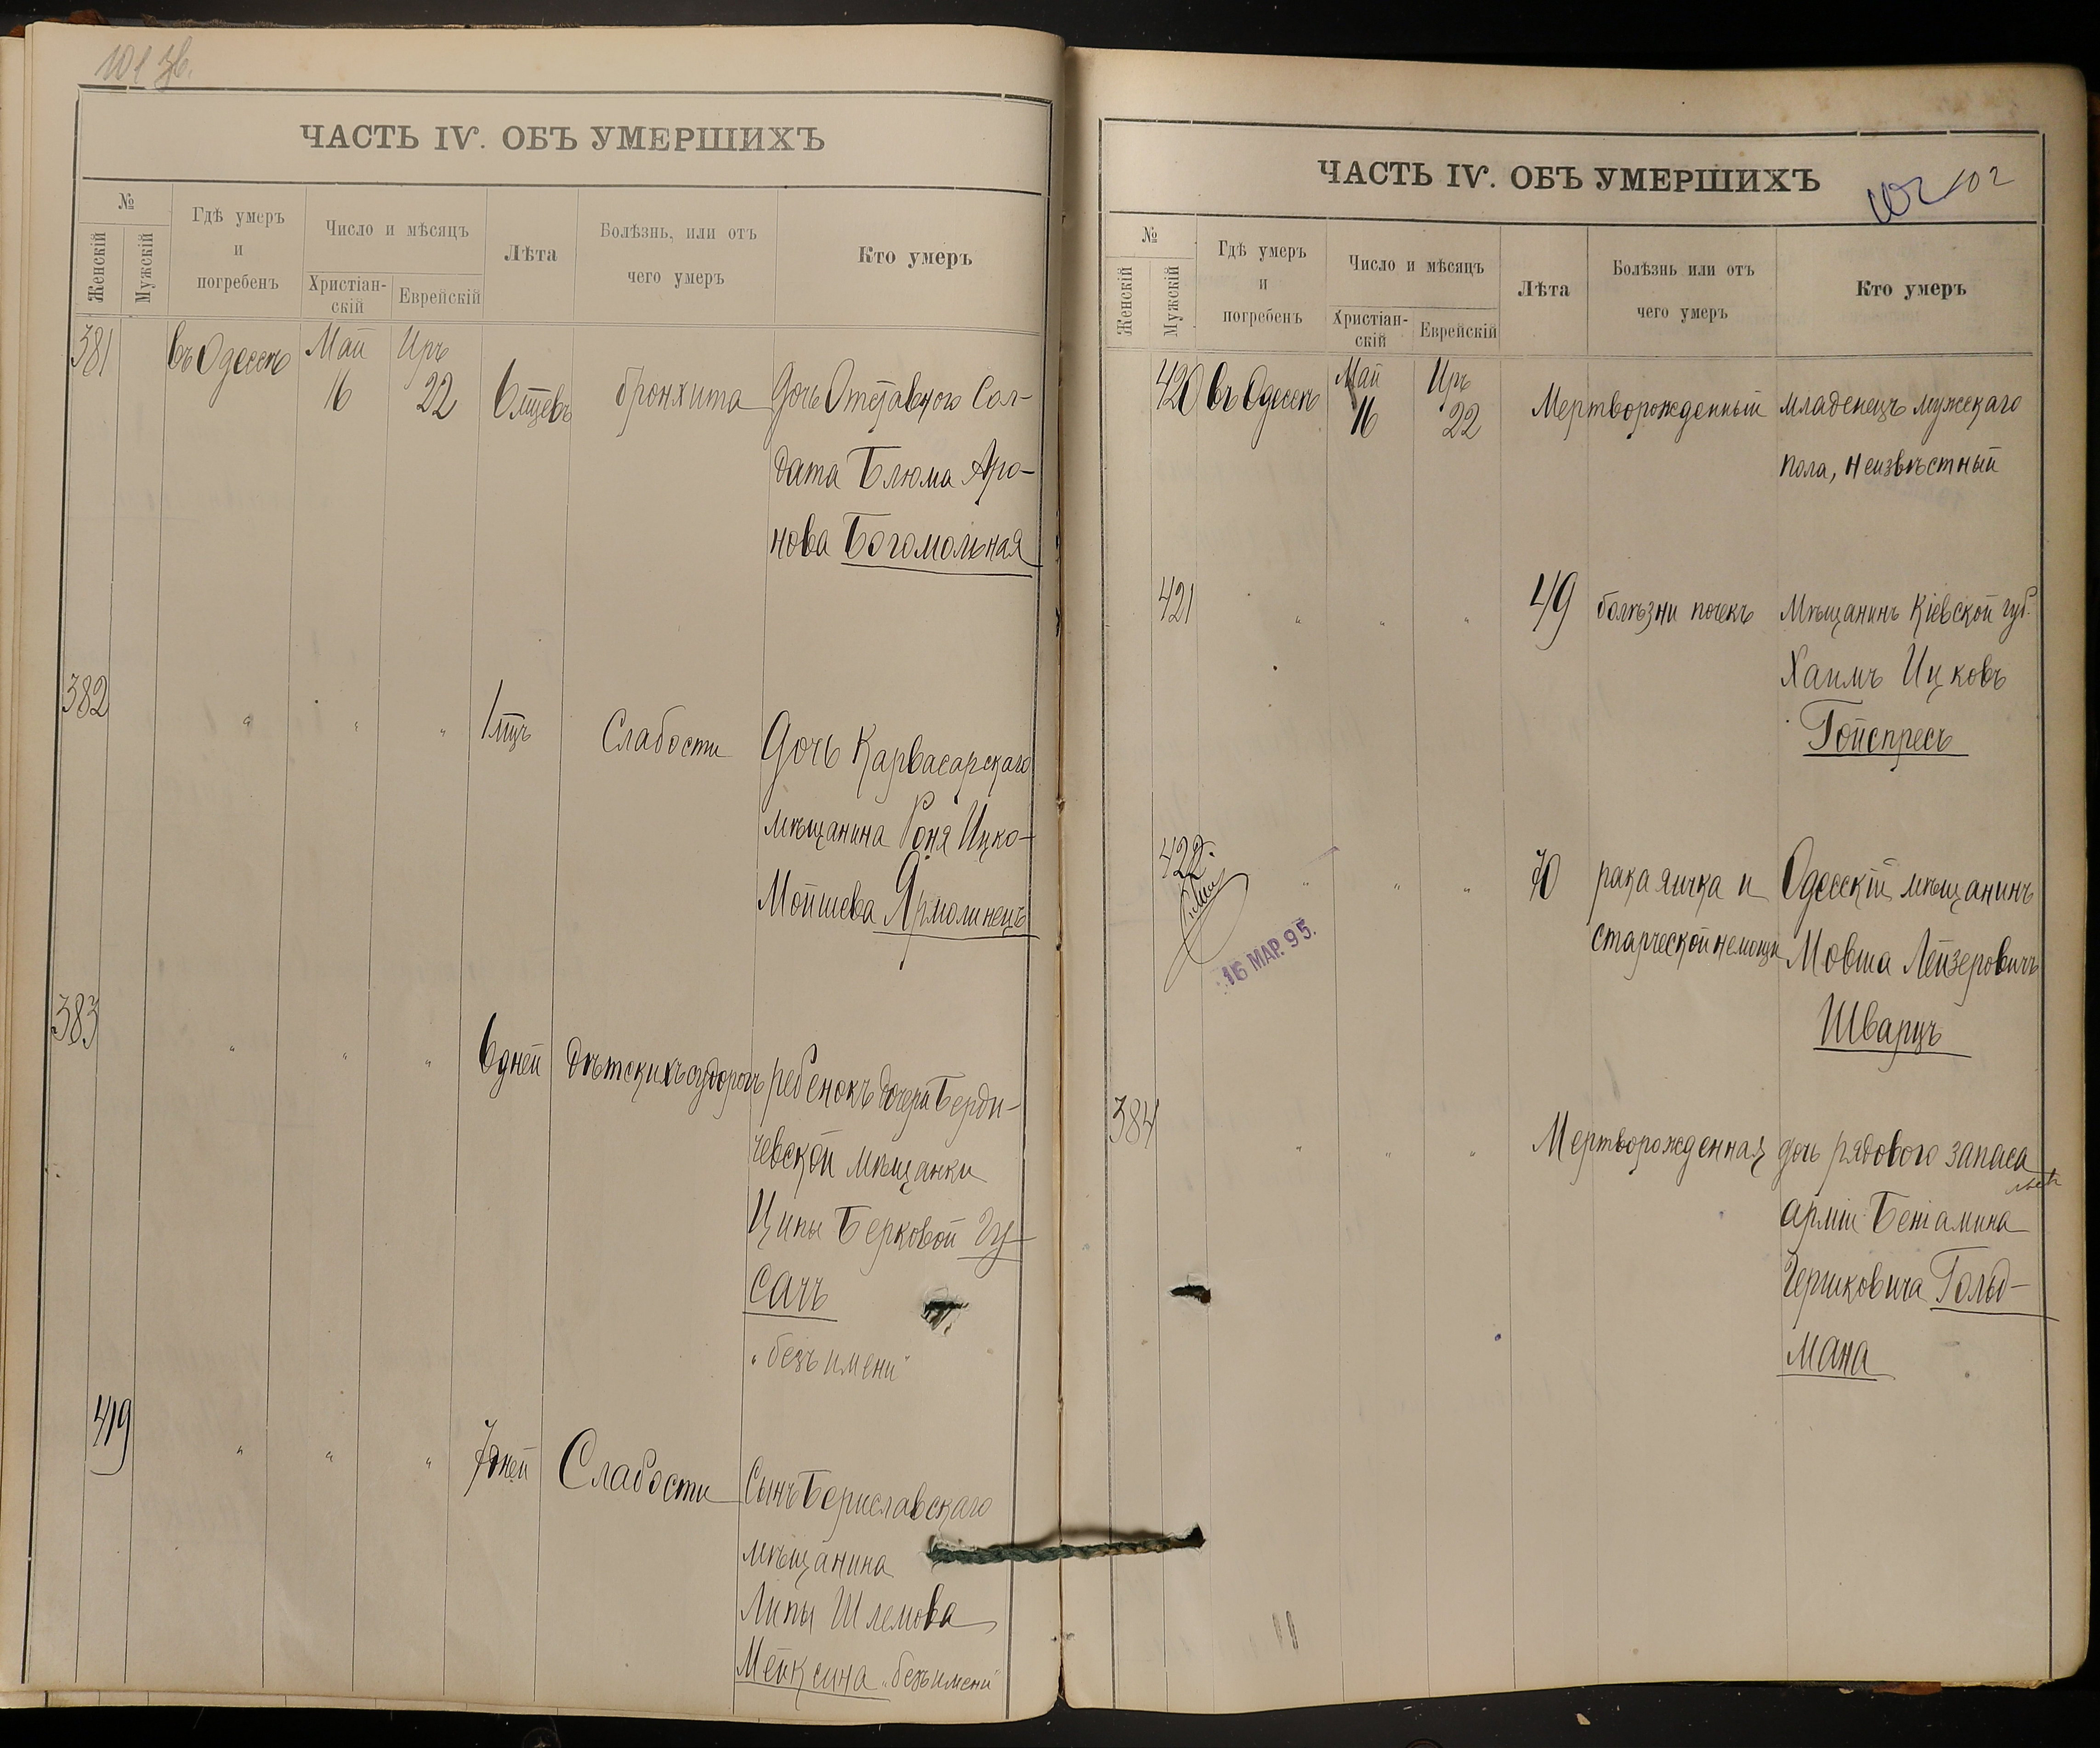 ЧАСТЬ IV. ОБЪ УМЕРШИХЪ
№
Женскій
Мужскій
Гдѣ умеръ
и
погребенъ
Число и мѣсяцъ
Христіан-
скій
Еврейскій
Лѣта
Болѣзнь, или отъ
чего умеръ
Кто умеръ
381 въ Одессѣ Май Иръ
16 22 6 мцевъ бронхита дочь Отставного Сол-
дата Блюма Аро-
нова Богомольная
382 " " " 1 мцъ Слабости Дочь Карвасарскаго
мѣщанина Роня Ицко-
Мойшева Ярмолинецъ
383 " " " 6 дней дѣтскихъ судорогъ ребенокъ дочери Берди-
чевской мѣщанки
Ципы Берковой Гу-
сачъ
"безъ имени"
419 " " " 7 дней Слабости Сынъ Бериславскаго
мѣщанина
Липы Шлемова
Мейксина "безъ имени"
ЧАСТЬ IV. ОБЪ УМЕРШИХЪ
102 102
№
Женскій
Мужскій
Гдѣ умеръ
и
погребенъ
Число и мѣсяцъ
Христіан-
скій
Еврейскій
Лѣта
Болѣзнь или отъ
чего умеръ
Кто умеръ
420 въ Одессѣ Май Иръ
16 22 Мертворожденный младенецъ мужскаго
пола, неизвѣстный
421 " " " 49 болѣзни почекъ Мѣщанинъ Кіевской губ.
Хаимъ Ицковъ
Гойспресъ
422. " " " 70 рака яичка и Одесскій мѣщанинъ
старческой немощи Мовша Лейзеровичъ
16 МАР. 95.
Шварцъ
384 " " " Мертворожденная дочь рядового запаса
арміи Беніамина
Гершковича Гольд-
мана